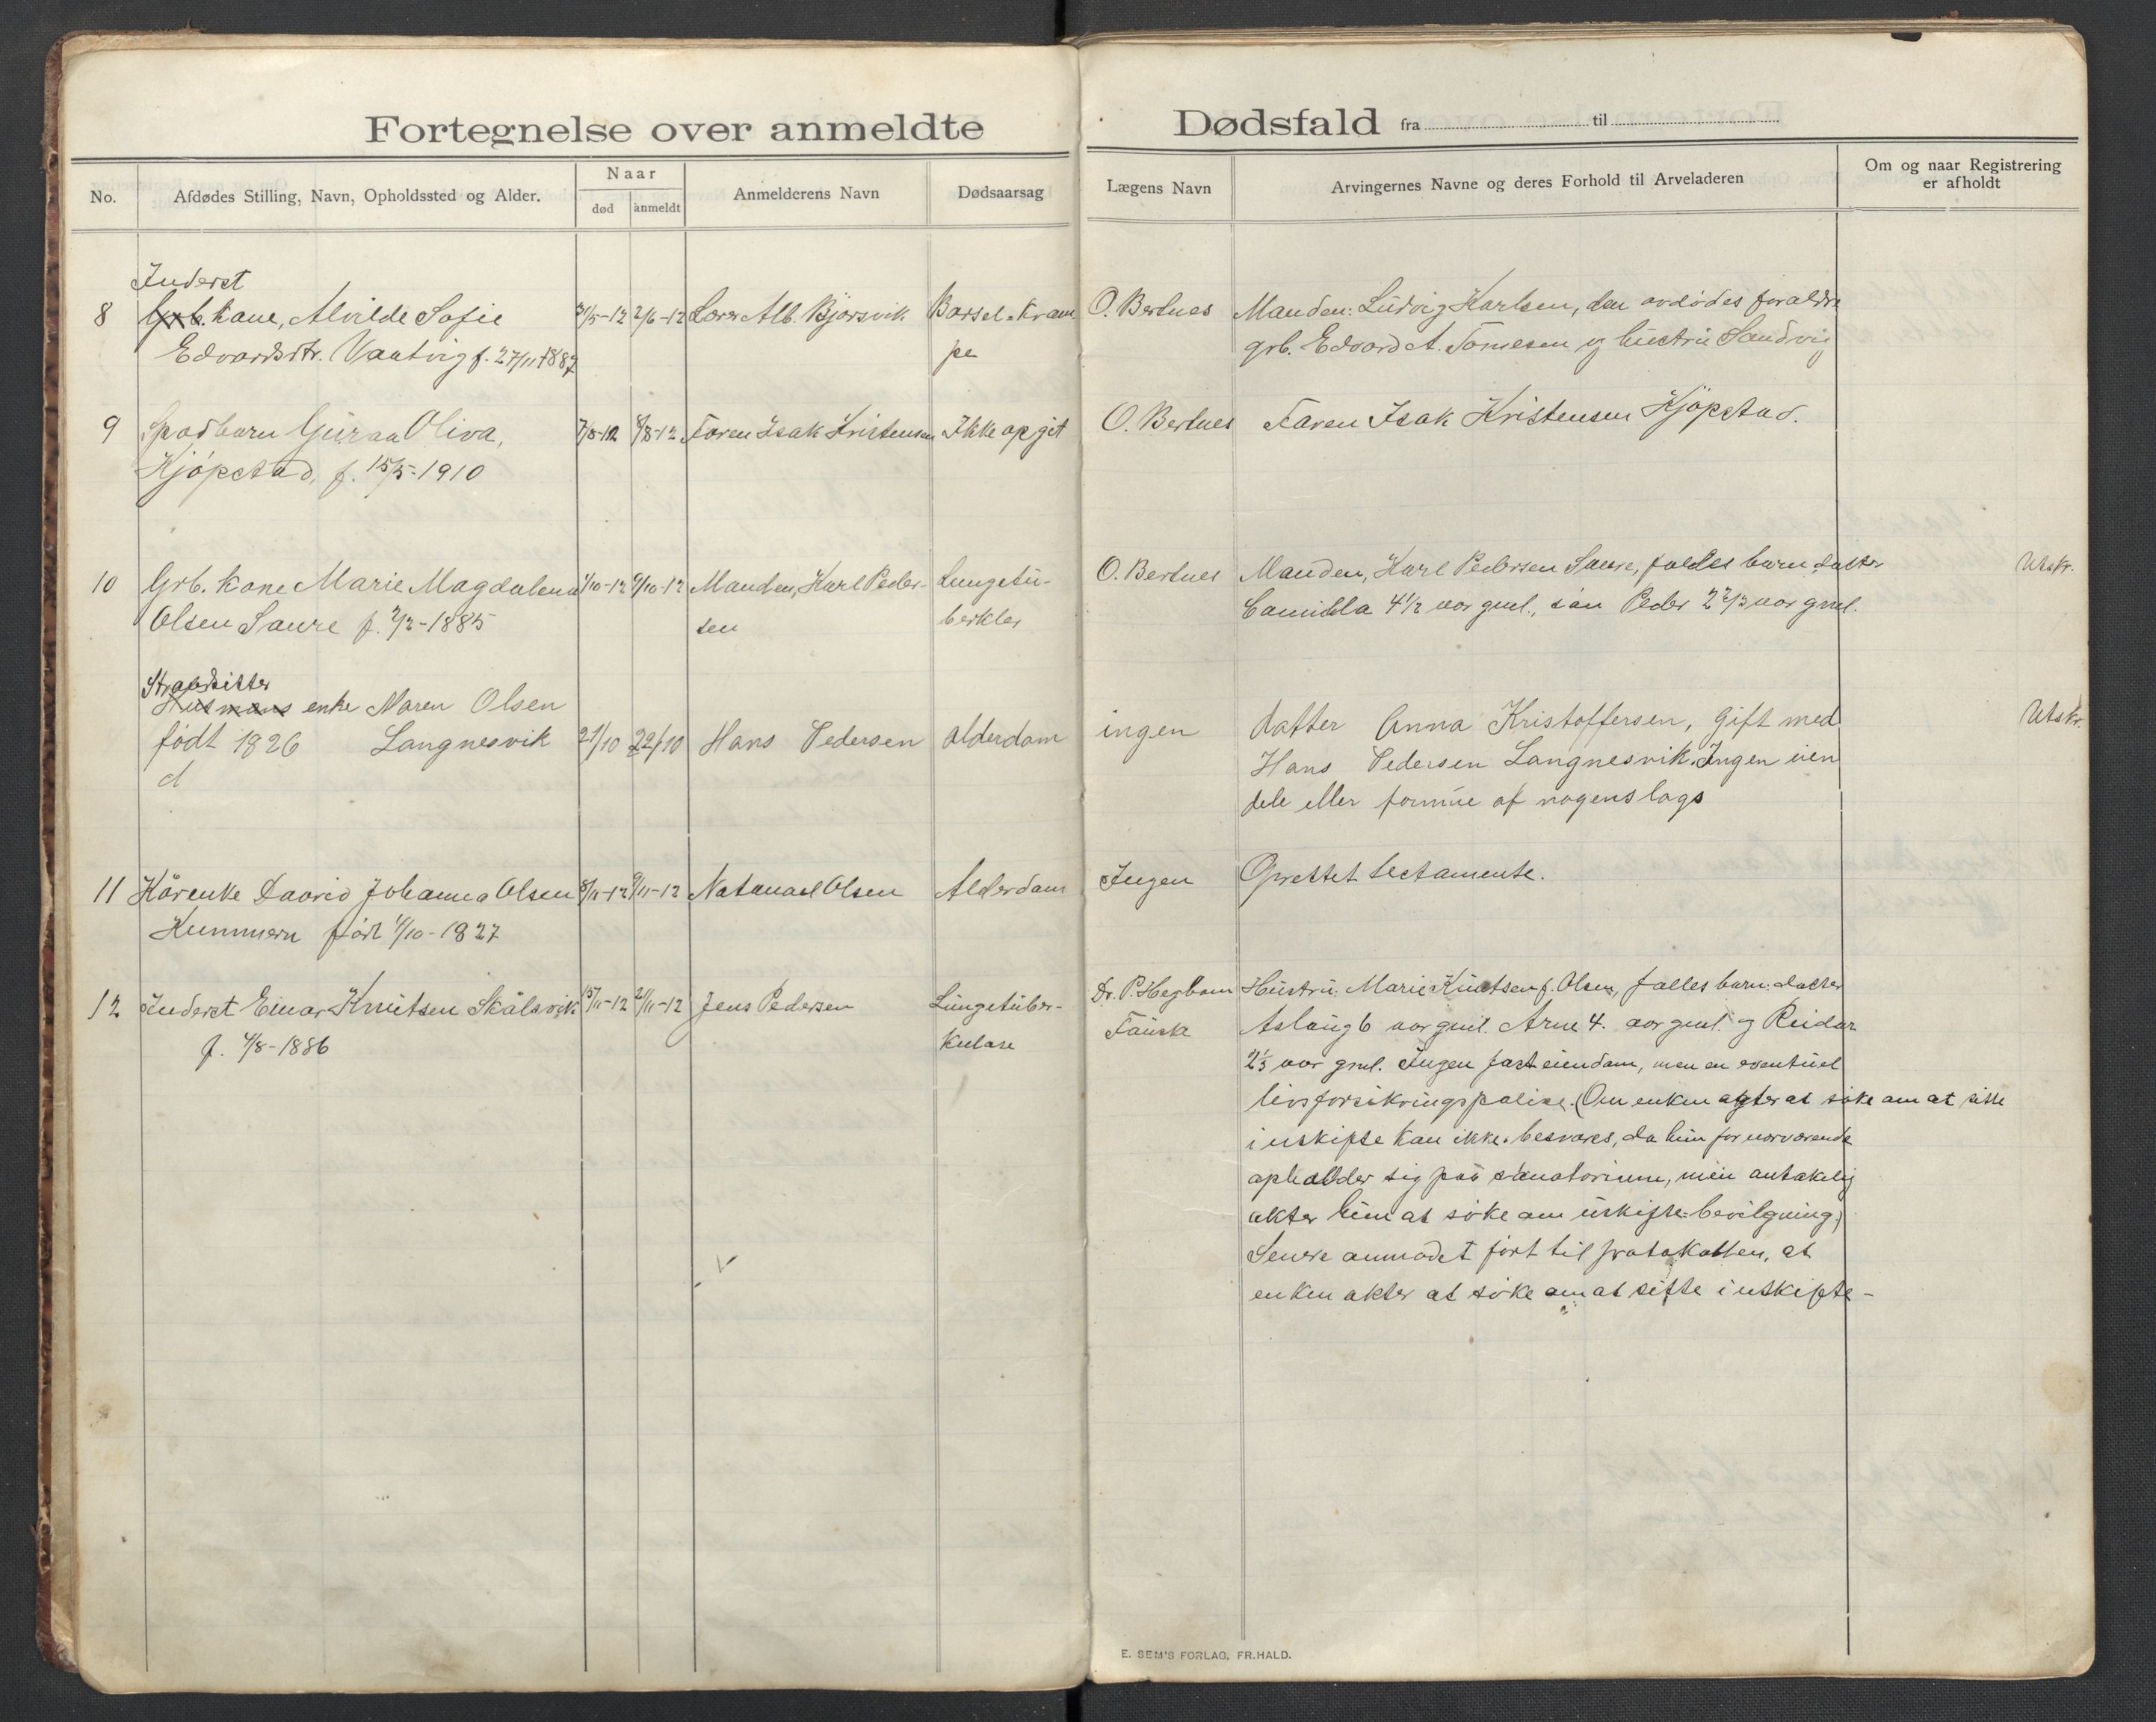 Fortegnelse over anmeldte Dødsfald fra til
No.
Afdødes Stilling, Navn, Opholdssted og Alder.
Naar
død
anmeldt
Anmelderens Navn
Dødsaarsag
Lægens Navn
Arvingernes Navne og deres Forhold til Arveladeren
Om og naar Registrering
er afholdt
Inderst
8 Grb. kone, Alvilde Sofie 31/5-12 2/6-12 Lærer Alb. Bjørsvik Barsel-kram O. Bertnes Manden: Ludvig Karlsen, den avdødes foraldre
Edvardsdtr. Vaatvig f. 27/11 1887 pe grb. Edvard A. Tomesen og hustru Sandvig
9 Spædbarn Guran Oliva, 7/8-12 8/8-12 Faren Isak Kristensen Ikke opgit O. Bertnes Faren Isak Kristensen Kjøpstad.
Kjøpstad, f. 15/5-1910
10 Grb. kone Marie Magdalena 1/10-12 9/10-12 Manden, Karl Peder- Lungetu- O. Bertnes Manden, Karl Pedersen Saure, fælles barn datter Utskr.
Olsen Saure f. 2/2-1885 sen berkler Camilla 4 1/2 aar gml., søn Peder 2 2/3 aar gml.
Strandsitter
Husmans enke Maren Olsen
født 1826 Langnesvik 21/10 22/10 Hans Pedersen alderdom ingen datter Anna Kristoffersen, gift med Utskr.
d Hans Pedersen Langnesvik. Ingen eien
dele eller formue af nogenslags
11 Kårenke Daarid Johanna Olsen 8/11-12 9/11-12 Natanael Olsen Alderdom Ingen Oprettet testamente.
Kummern født 1/10-1827
12 Inderst Einar Knutsen Skålsvik 15/11-12 21/11-12 Jens Pedersen Lungetuber- Dr. P. Hegbom Hustru: Marie Knutsen f. Olsen, falles barn: datter
f. 4/8-1886 kulose Fauske Aslaug 6 aar gml. Arne 4. aar gml. og Reidar
2 1/3 aar gml. Ingen fast eiendom, men en eventuel
livsforsikringspolise. (Om enken agter at søke om at sitte
i uskifte kan ikke besvares, da hun for nærværende
opholder sig paa sanatorium, men antakelig
akter hun at søke om uskifte-bevilgning)
Senere anmodet ført til protokollen, at
enken akter at søke om at sitte i uskifte-
E. SEM'S FORLAG, FR.HALD.